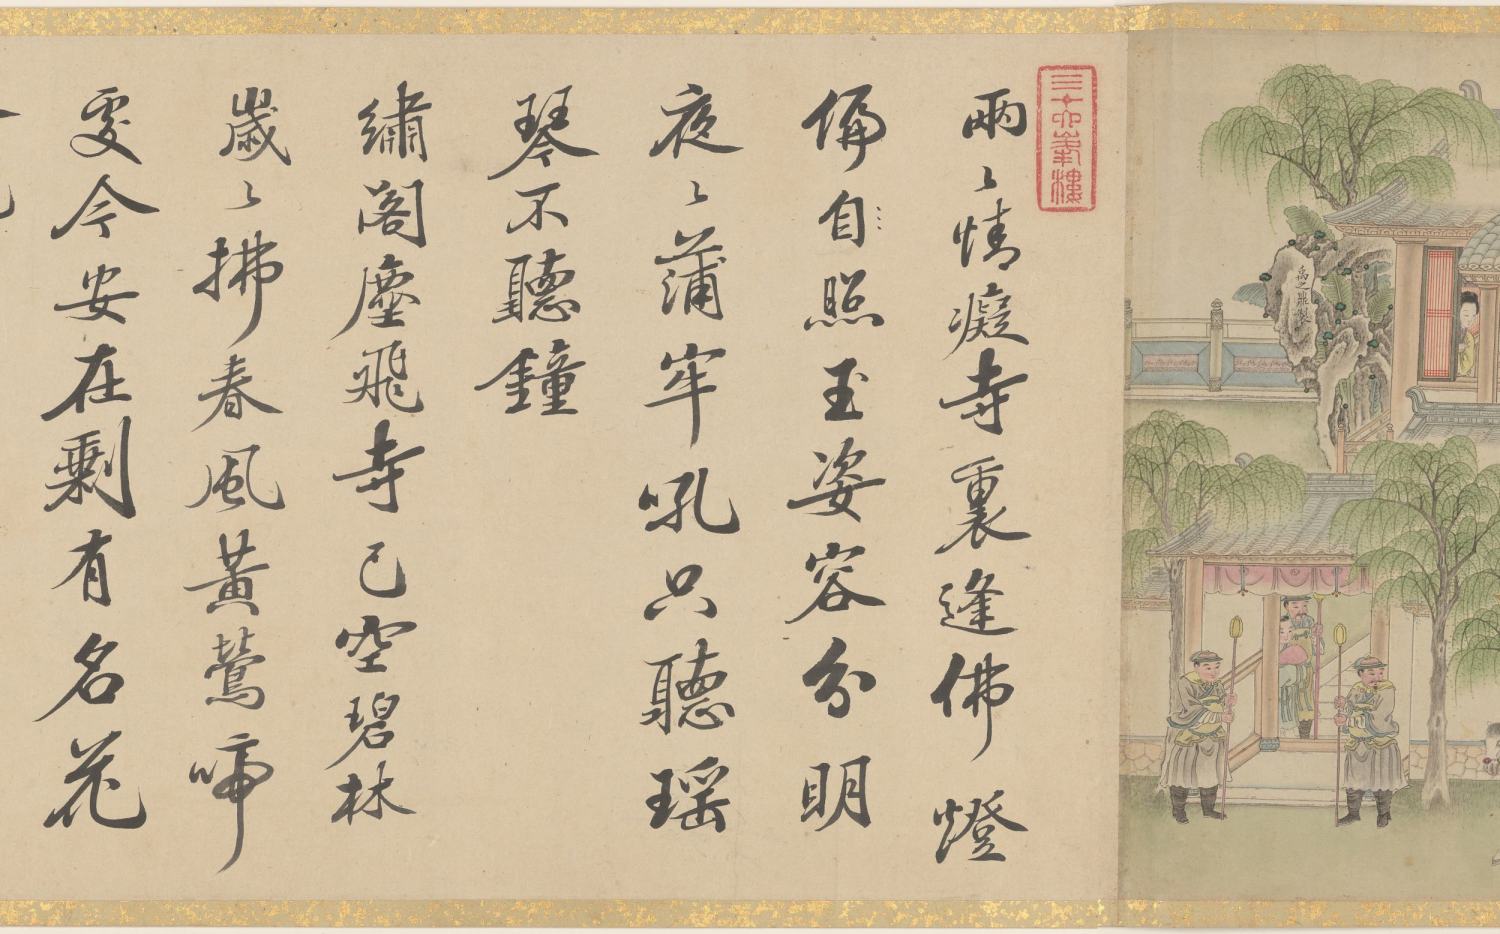 禹之鼎製
三十六峯樓
兩〻情癡寺裏逢佛燈
偏自照玉姿容分明
夜〻蒲牢吼只聽瑤
琴不聽鐘
繡閣塵飛寺已空碧林
歲〻拂春風黃鶯啼
處今安在剩有名花